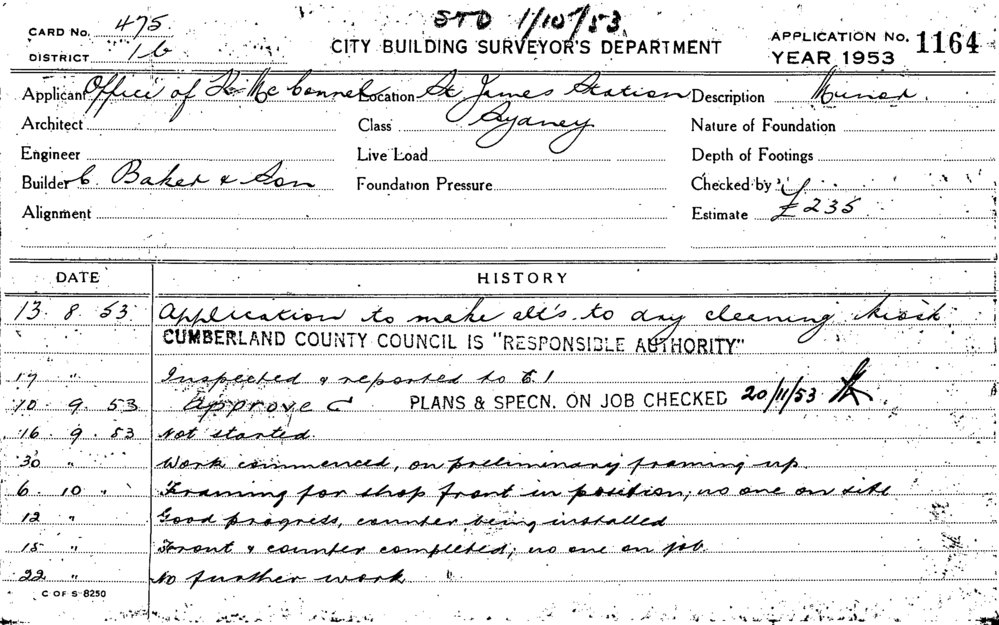 STD 1/10/53
CARD No. 475
CITY BUILDING SURVEYOR'S DEPARTMENT
APPLICATION No. 1164
DISTRICT 1b
YEAR 1953
Applicant Office of Mc Connel Location St James Station Description Minor.
Architect Class Sydney Nature of Foundation
Engineer Live Load Depth of Footings
Builder C. Baker & Son Foundation Pressure Checked by
Alignment Estimate £235
DATE HISTORY
13. 8. 53 Application to make alt's to dry cleaning kiosk
CUMBERLAND COUNTY COUNCIL IS "RESPONSIBLE AUTHORITY"
17 " Inspected & reported to
10. 9. 53 Approve PLANS & SPECN. ON JOB CHECKED 20/11/53
16. 9. 53 Not started.
30 " Work commenced, on preliminary framing up.
6. 10 " Framing for shop front in position; no one on site
12 " Good progress, counter being installed
15 " Front & counter completed; no one on job.
22 " No further work.
C OF S 8250